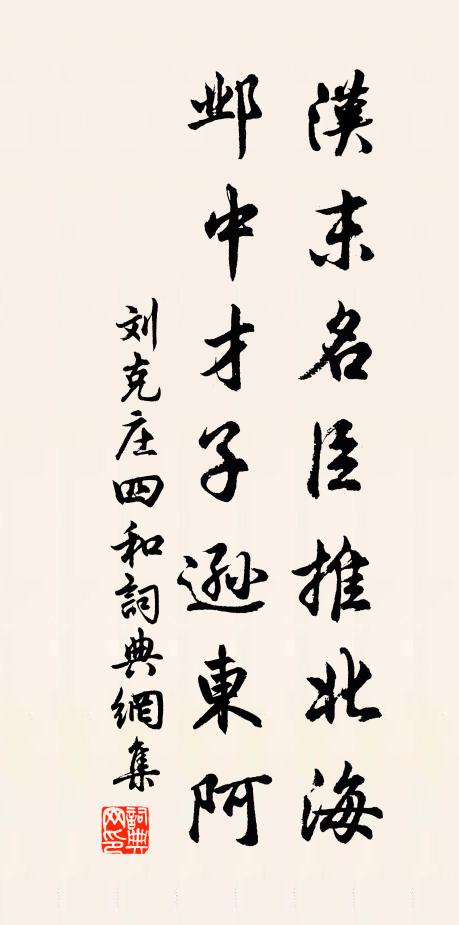 漢末名臣推北海
邺中才子遜東阿
刘克庄四和詞典網集
詞典网印